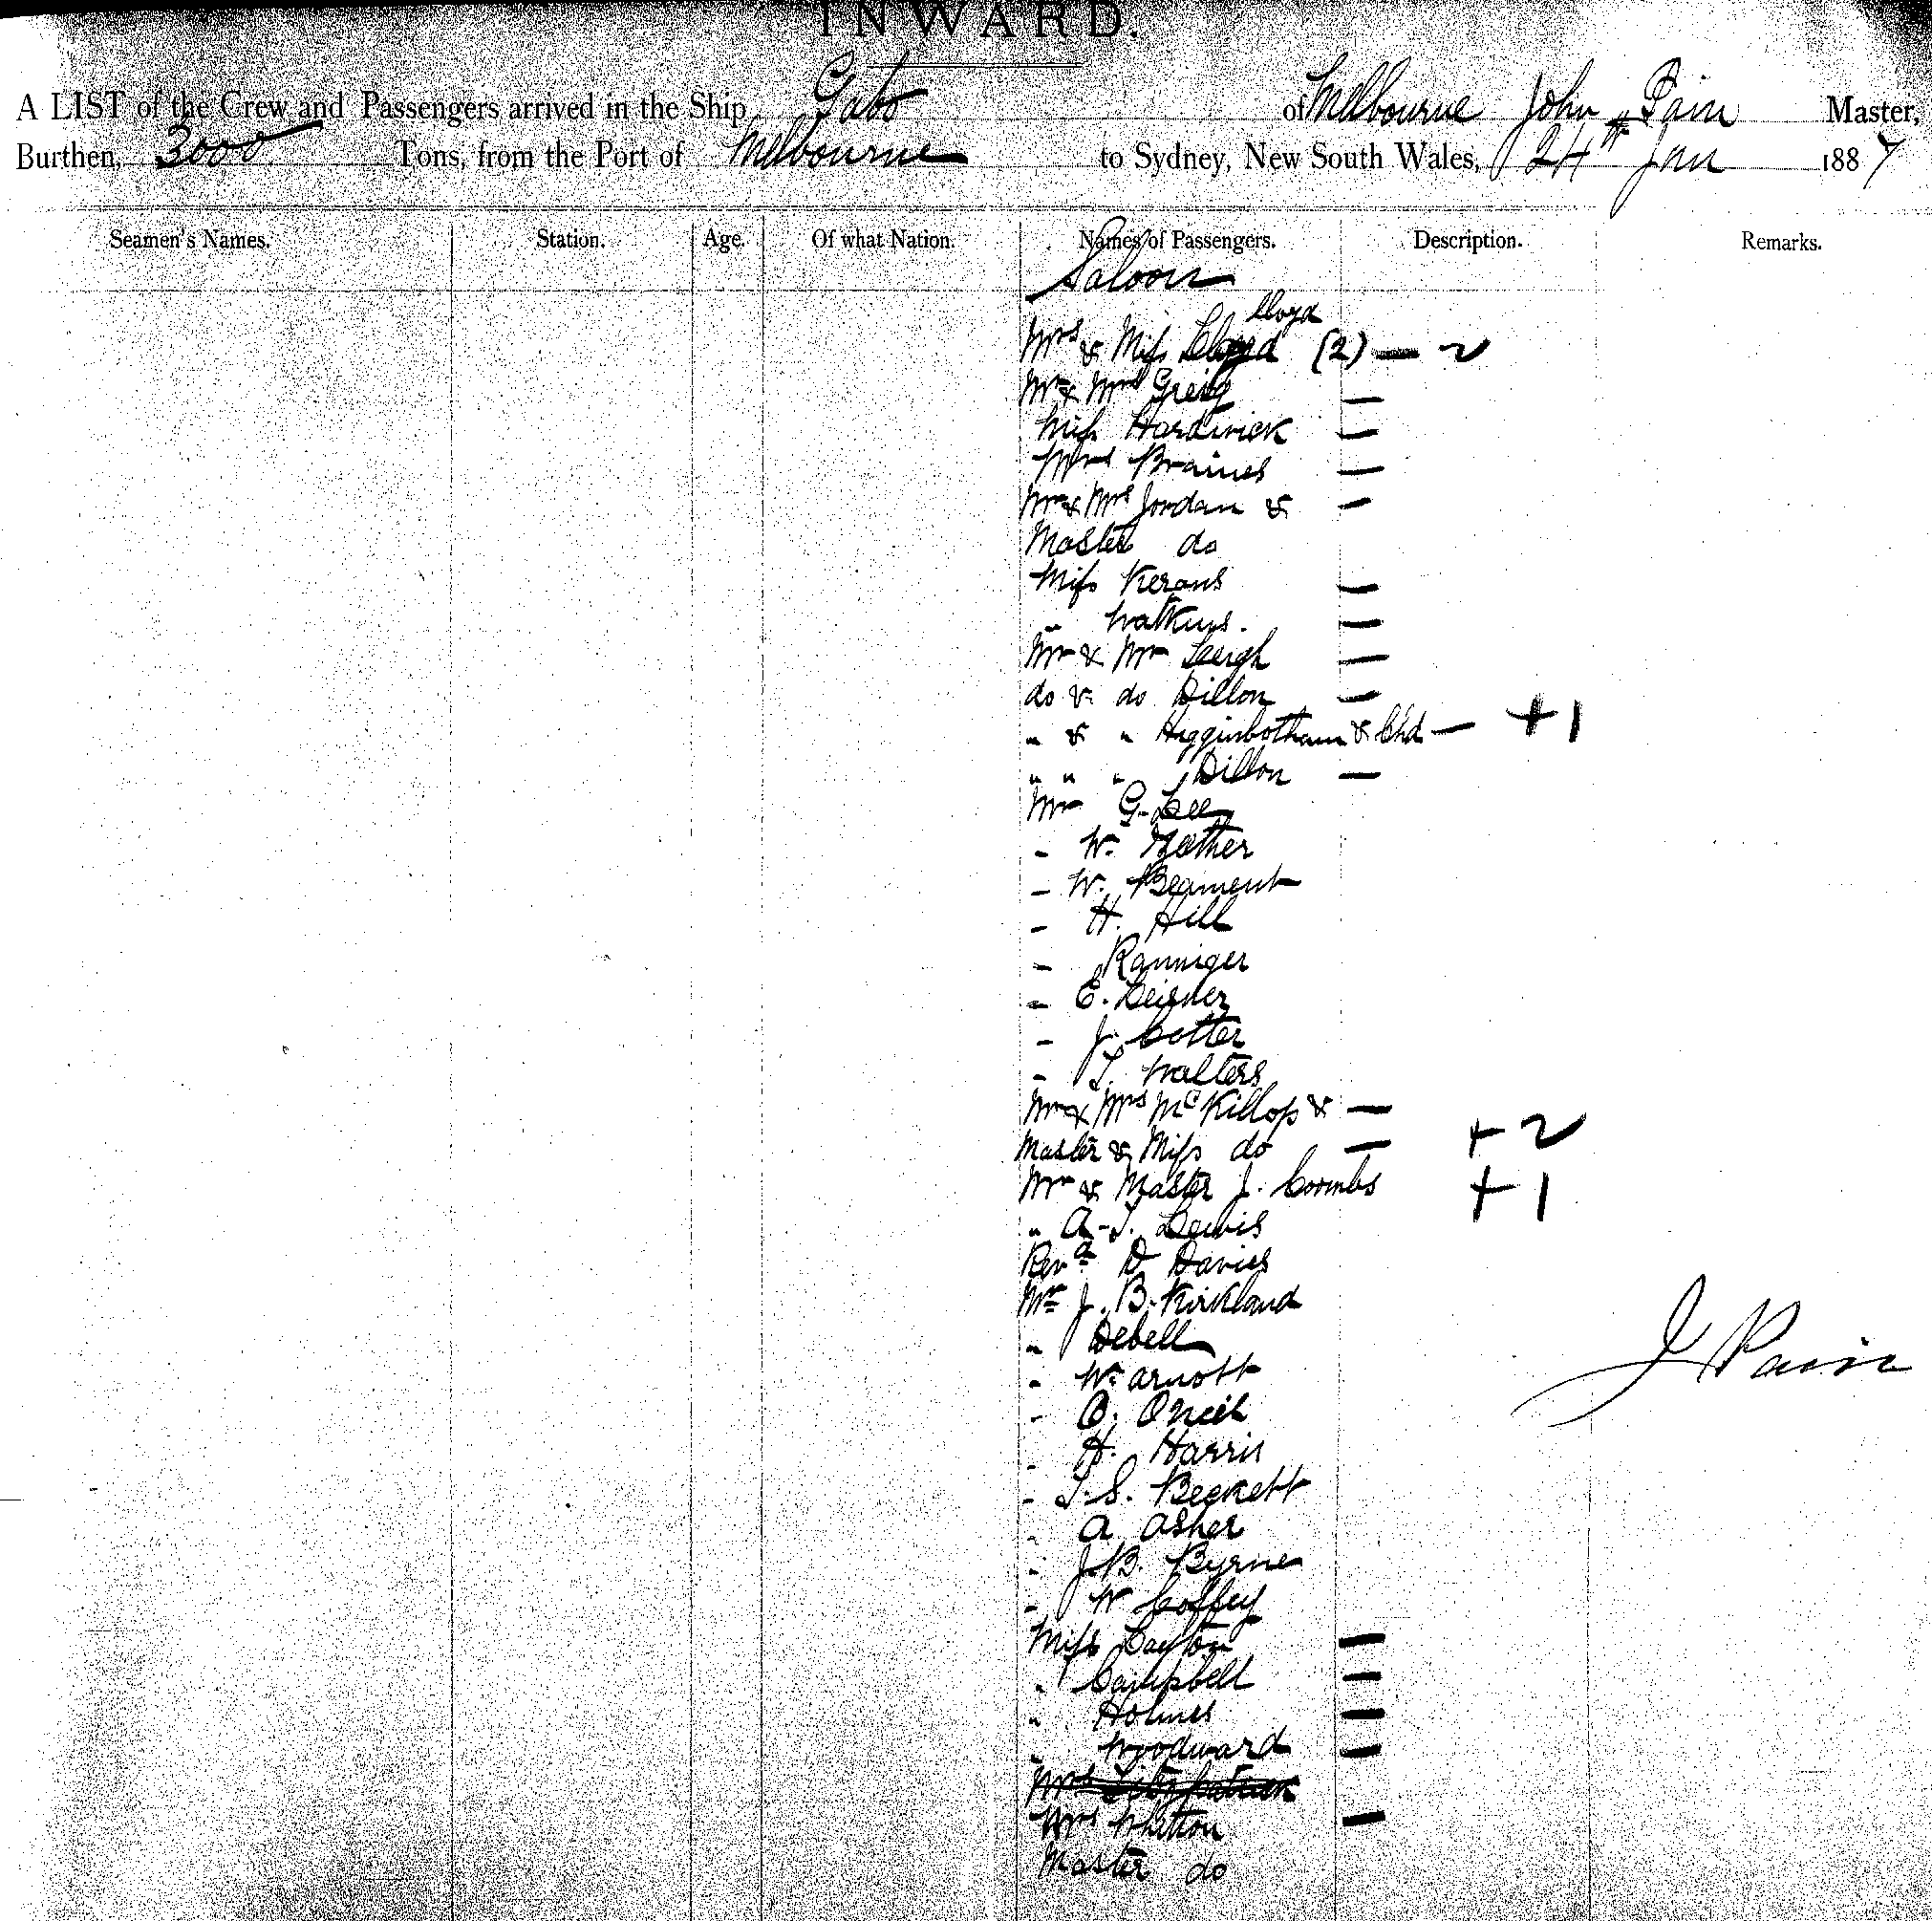 INWARD.
A LIST of the Crew and Passengers arrived in the Ship Gabo of Melbourne John Pain Master,
Burthen, 3000 Tons, from the Port of Melbourne to Sydney, New South Wales, 24th Jan 1887
Seamen's Names. Station. Age. Of what Nation. Names of Passengers. Description. Remarks.
Saloon
Lloyd
Mrs & Miss Lloyd (2) — 2
Mr & Mrs Greig —
Miss Hardwick —
Mrs Braines —
Mr & Mrs Jordan & —
Master do
Miss Kerans —
" Watkins. —
Mr & Mrs Leigh —
do & do Dillon —
" & " Higginbotham & Chd — +1
" " " Dillon —
Mr G. Lee
- W. Mather
- W. Beament
- H. Hill
- Ranniger
- E.
- J. Cotter
- T. Walters
Mr & Mrs McKillop & —
Master & Miss do — +2
Mr & Master J. Coombs +1
" A. T. Lewis
Revd D Davies
Mr J. B. Kirkland
" Debell
- W. Arnott
- O. O'Neil
- H. Harris
- T. S. Beckett
- A Asher
- J B. Byrne
- W Coffey
Miss Layton —
" Campbell —
" Holmes —
" Woodward —
Mrs Fitzpatrick
Mrs Whitton —
Master do
J Pain